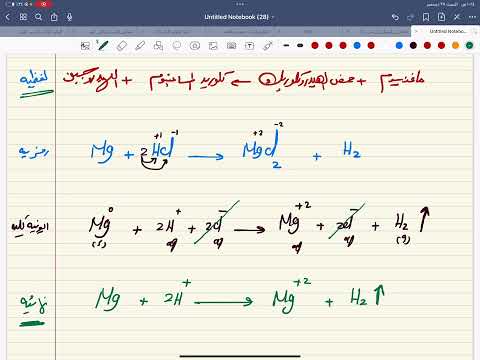 Untitled Notebook (28)
لفظية مغنيسيوم + حمض الهيدروكلوريك → كلوريد المغنيسيوم + الهيدروجين
رمزية Mg + 2HCl → MgCl2 + H2
+1 -1 +2 -2
ايونية كلية Mg⁰ (s) + 2H⁺ aq + 2Cl⁻ aq → Mg⁺² aq + 2Cl⁻ aq + H2 (g) ↑
نهائية Mg + 2H⁺ → Mg⁺² + H2 ↑